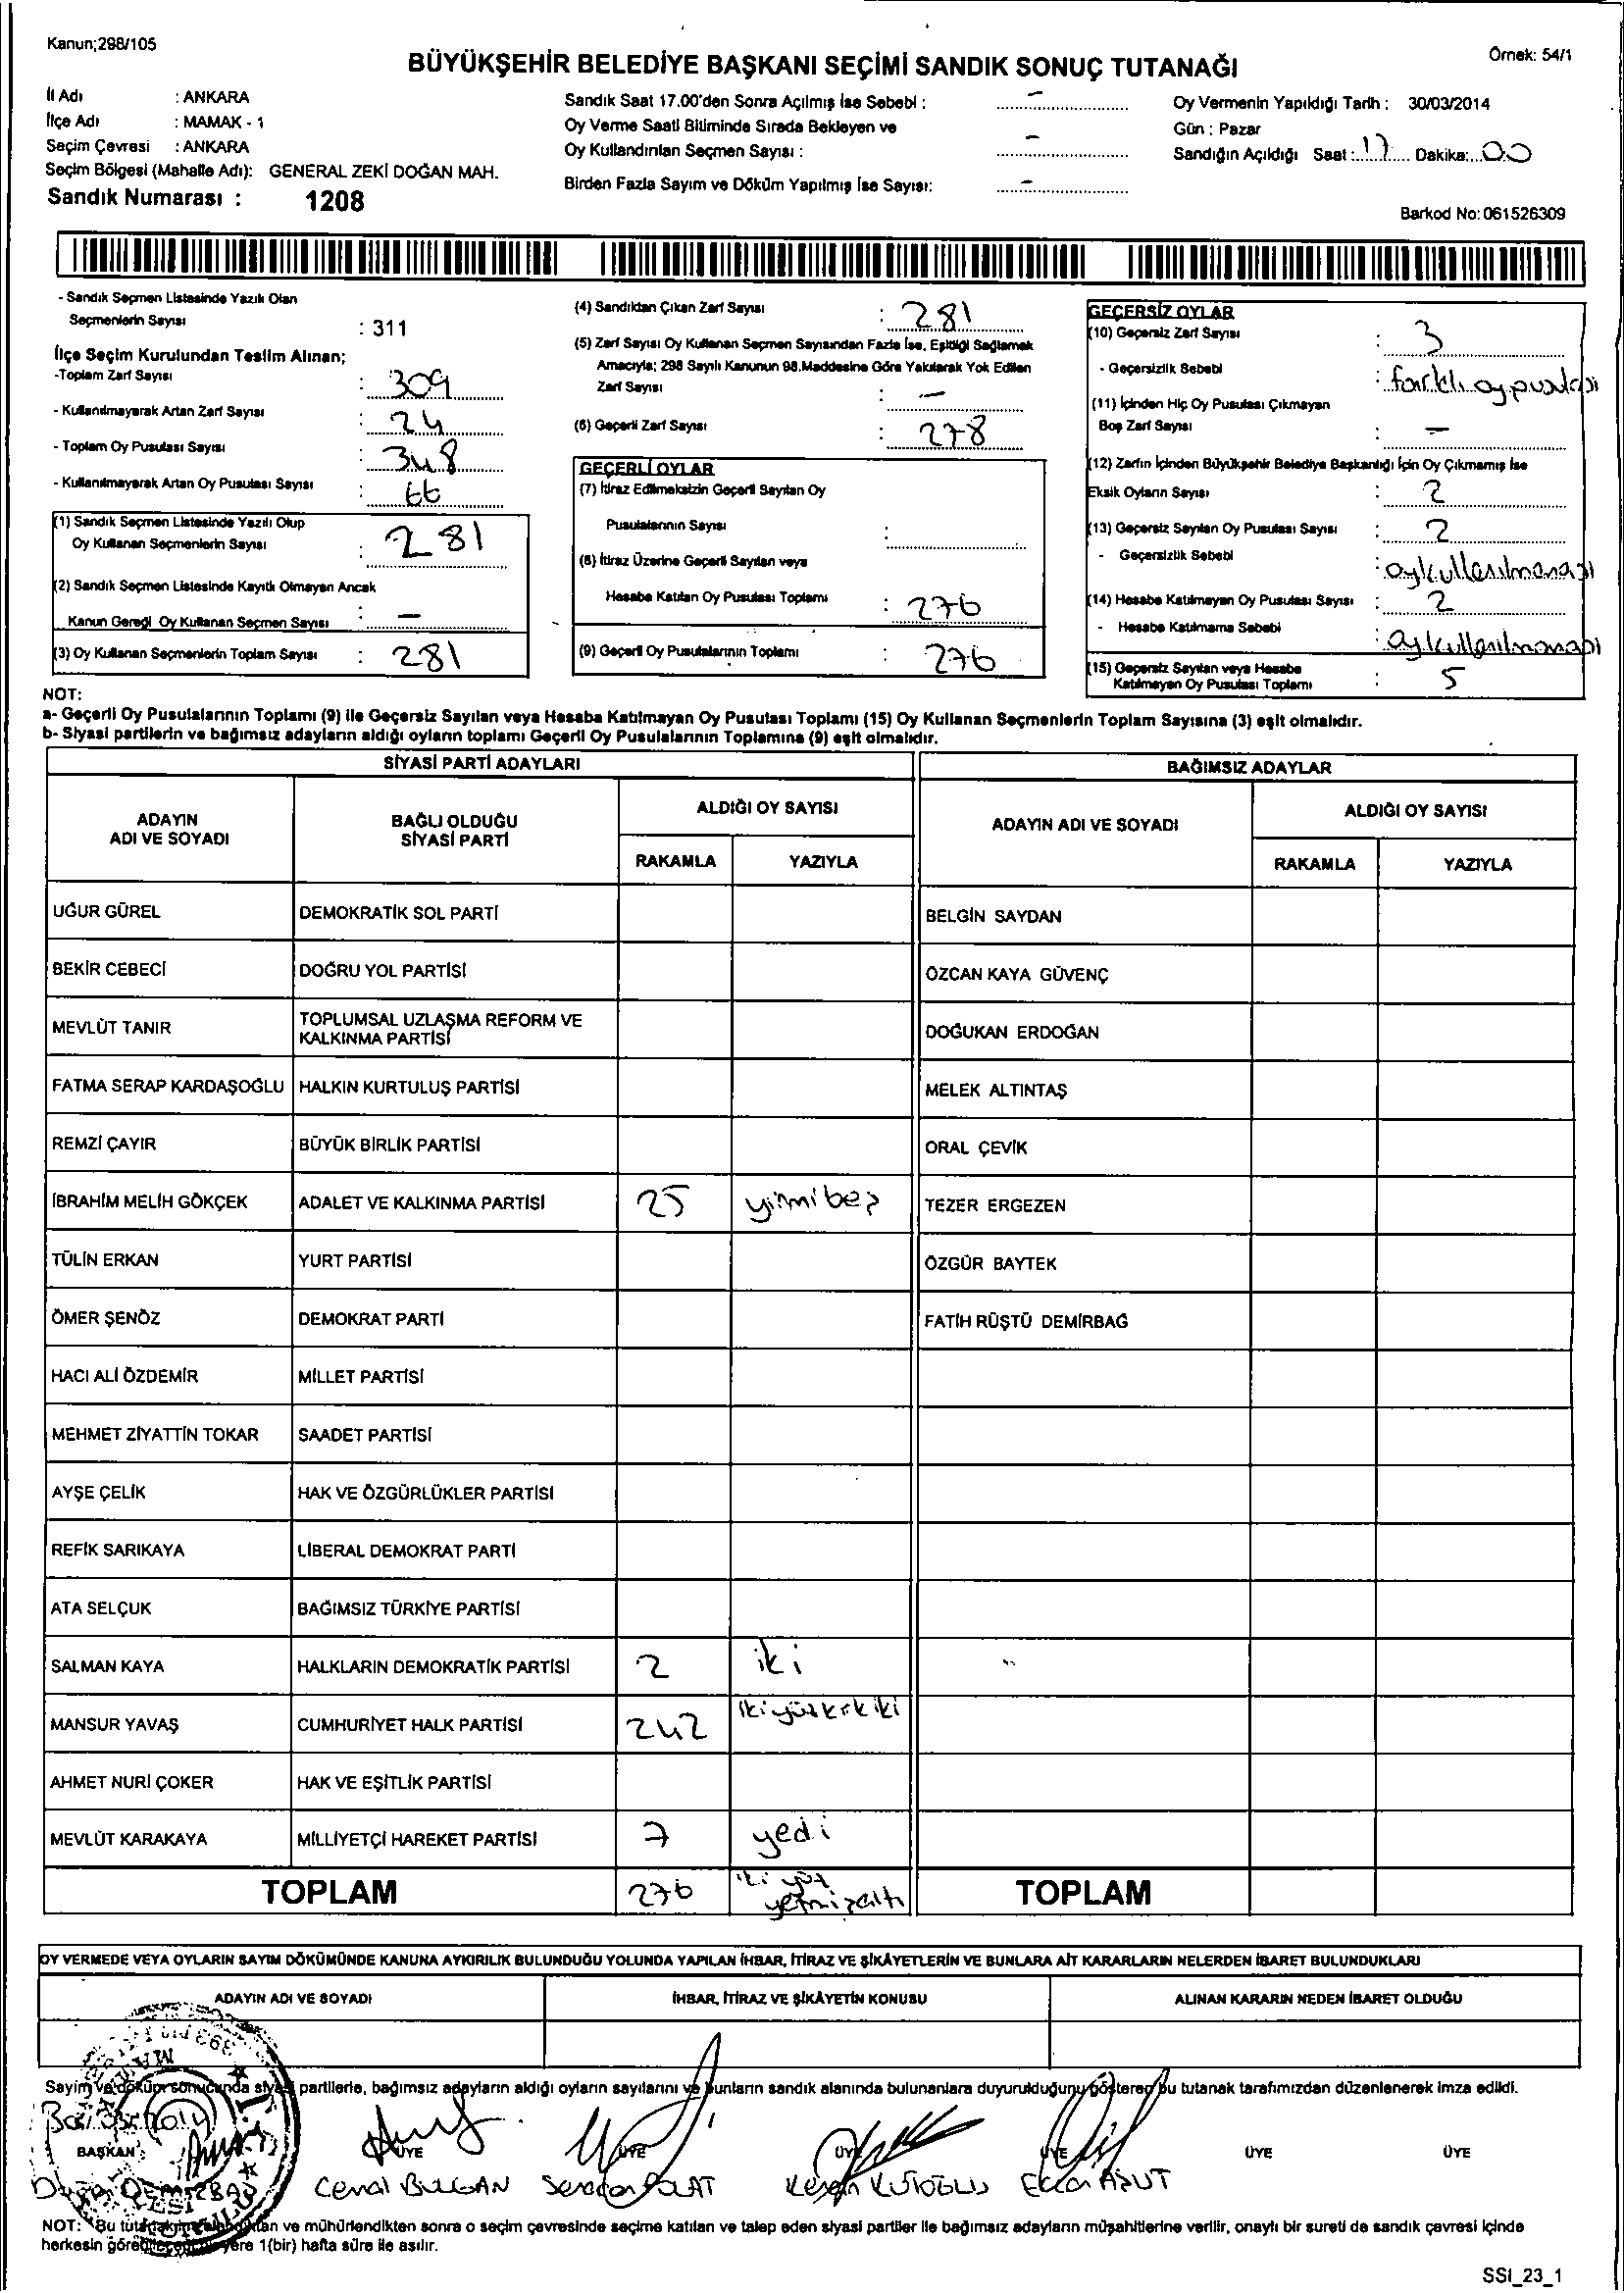 Kanun;298/105
Örnek: 54/1
BÜYÜKŞEHİR BELEDİYE BAŞKANI SEÇİMİ SANDIK SONUÇ TUTANAĞI
İl Adı : ANKARA
İlçe Adı : MAMAK - 1
Seçim Çevresi : ANKARA
Seçim Bölgesi (Mahalle Adı): GENERAL ZEKİ DOĞAN MAH.
Sandık Numarası : 1208
Sandık Saat 17.00'den Sonra Açılmış İse Sebebi : -
Oy Verme Saati Bitiminde Sırada Bekleyen ve
Oy Kullandırılan Seçmen Sayısı : -
Birden Fazla Sayım ve Döküm Yapılmış İse Sayısı: -
Oy Vermenin Yapıldığı Tarih : 30/03/2014
Gün : Pazar
Sandığın Açıldığı Saat : 17 Dakika: 00
Barkod No: 061526309
- Sandık Seçmen Listesinde Yazılı Olan
Seçmenlerin Sayısı : 311
İlçe Seçim Kurulundan Teslim Alınan;
-Toplam Zarf Sayısı : 309
- Kullanılmayarak Artan Zarf Sayısı : 24
- Toplam Oy Pusulası Sayısı : 348
- Kullanılmayarak Artan Oy Pusulası Sayısı : 66
(1) Sandık Seçmen Listesinde Yazılı Olup
Oy Kullanan Seçmenlerin Sayısı : 281
(2) Sandık Seçmen Listesinde Kayıtlı Olmayan Ancak
Kanun Gereği Oy Kullanan Seçmen Sayısı : -
(3) Oy Kullanan Seçmenlerin Toplam Sayısı : 281
(4) Sandıktan Çıkan Zarf Sayısı : 281
(5) Zarf Sayısı Oy Kullanan Seçmen Sayısından Fazla İse, Eşitliği Sağlamak
Amacıyla; 298 Sayılı Kanunun 98.Maddesine Göre Yakılarak Yok Edilen
Zarf Sayısı : -
(6) Geçerli Zarf Sayısı : 278
GEÇERLİ OYLAR
(7) İtiraz Edilmeksizin Geçerli Sayılan Oy
Pusulalarının Sayısı :
(8) İtiraz Üzerine Geçerli Sayılan veya
Hesaba Katılan Oy Pusulası Toplamı : 276
(9) Geçerli Oy Pusulalarının Toplamı : 276
GEÇERSİZ OYLAR
(10) Geçersiz Zarf Sayısı : 3
- Geçersizlik Sebebi : farklı oy pusulası
(11) İçinden Hiç Oy Pusulası Çıkmayan
Boş Zarf Sayısı : -
(12) Zarfın İçinden Büyükşehir Belediye Başkanlığı İçin Oy Çıkmamış İse
Eksik Oyların Sayısı : 2
(13) Geçersiz Sayılan Oy Pusulası Sayısı : 2
- Geçersizlik Sebebi : oy kullanılmaması
(14) Hesaba Katılmayan Oy Pusulası Sayısı : 2
- Hesaba Katılmama Sebebi : oy kullanılmaması
(15) Geçersiz Sayılan veya Hesaba
Katılmayan Oy Pusulası Toplamı : 5
NOT:
a- Geçerli Oy Pusulalarının Toplamı (9) ile Geçersiz Sayılan veya Hesaba Katılmayan Oy Pusulası Toplamı (15) Oy Kullanan Seçmenlerin Toplam Sayısına (3) eşit olmalıdır.
b- Siyasi partilerin ve bağımsız adayların aldığı oyların toplamı Geçerli Oy Pusulalarının Toplamına (9) eşit olmalıdır.
SİYASİ PARTİ ADAYLARI
BAĞIMSIZ ADAYLAR
ADAYIN ADI VE SOYADI
BAĞLI OLDUĞU SİYASİ PARTİ
ALDIĞI OY SAYISI
RAKAMLA YAZIYLA
ADAYIN ADI VE SOYADI
ALDIĞI OY SAYISI
RAKAMLA YAZIYLA
UĞUR GÜREL DEMOKRATİK SOL PARTİ BELGİN SAYDAN
BEKİR CEBECİ DOĞRU YOL PARTİSİ ÖZCAN KAYA GÜVENÇ
MEVLÜT TANIR TOPLUMSAL UZLAŞMA REFORM VE KALKINMA PARTİSİ DOĞUKAN ERDOĞAN
FATMA SERAP KARDAŞOĞLU HALKIN KURTULUŞ PARTİSİ MELEK ALTINTAŞ
REMZİ ÇAYIR BÜYÜK BİRLİK PARTİSİ ORAL ÇEVİK
İBRAHİM MELİH GÖKÇEK ADALET VE KALKINMA PARTİSİ 25 yirmibeş TEZER ERGEZEN
TÜLİN ERKAN YURT PARTİSİ ÖZGÜR BAYTEK
ÖMER ŞENÖZ DEMOKRAT PARTİ FATİH RÜŞTÜ DEMİRBAĞ
HACI ALİ ÖZDEMİR MİLLET PARTİSİ
MEHMET ZİYATTİN TOKAR SAADET PARTİSİ
AYŞE ÇELİK HAK VE ÖZGÜRLÜKLER PARTİSİ
REFİK SARIKAYA LİBERAL DEMOKRAT PARTİ
ATA SELÇUK BAĞIMSIZ TÜRKİYE PARTİSİ
SALMAN KAYA HALKLARIN DEMOKRATİK PARTİSİ 2 iki
MANSUR YAVAŞ CUMHURİYET HALK PARTİSİ 242 ikiyüzkırkiki
AHMET NURİ ÇOKER HAK VE EŞİTLİK PARTİSİ
MEVLÜT KARAKAYA MİLLİYETÇİ HAREKET PARTİSİ 7 yedi
TOPLAM 276 iki yüz yetmişaltı TOPLAM
OY VERMEDE VEYA OYLARIN SAYIM DÖKÜMÜNDE KANUNA AYKIRILIK BULUNDUĞU YOLUNDA YAPILAN İHBAR, İTİRAZ VE ŞİKÂYETLERİN VE BUNLARA AİT KARARLARIN NELERDEN İBARET BULUNDUKLARI
ADAYIN ADI VE SOYADI İHBAR, İTİRAZ VE ŞİKÂYETİN KONUSU ALINAN KARARIN NEDEN İBARET OLDUĞU
Sayım ve döküm sonucunda siyasi partilerle, bağımsız adayların aldığı oyların sayılarını ve bunların sandık alanında bulunanlara duyurulduğunu gösteren bu tutanak tarafımızdan düzenlenerek imza edildi.
BAŞKAN ÜYE ÜYE ÜYE ÜYE ÜYE ÜYE
Cemal BULGAN
NOT: Bu ve mühürlendikten sonra o seçim çevresinde seçime katılan ve talep eden siyasi partiler ile bağımsız adayların müşahitlerine verilir, onaylı bir sureti de sandık çevresi içinde
herkesin yere 1(bir) hafta süre ile asılır.
SSI_23_1